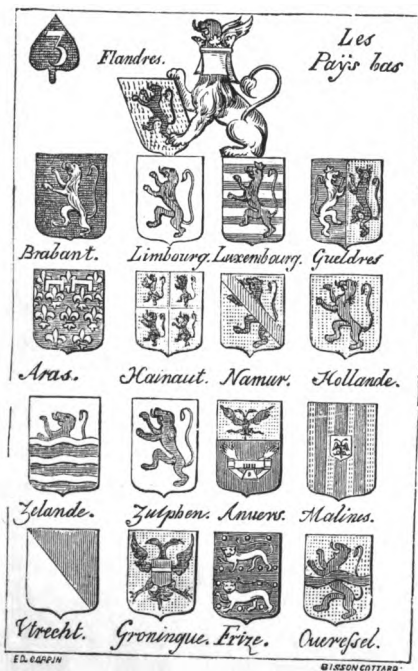 3
Les
Flandres.
Paÿs bas
Brabant. Limbourg. Luxembourg. Gueldres
Aras. Hainaut. Namur. Hollande.
Zelande. Zulphen. Anuers. Malines.
Vtrecht. Groningue. Frize. Oueressel.
ED. COPPIN
BISSON COTTARD.